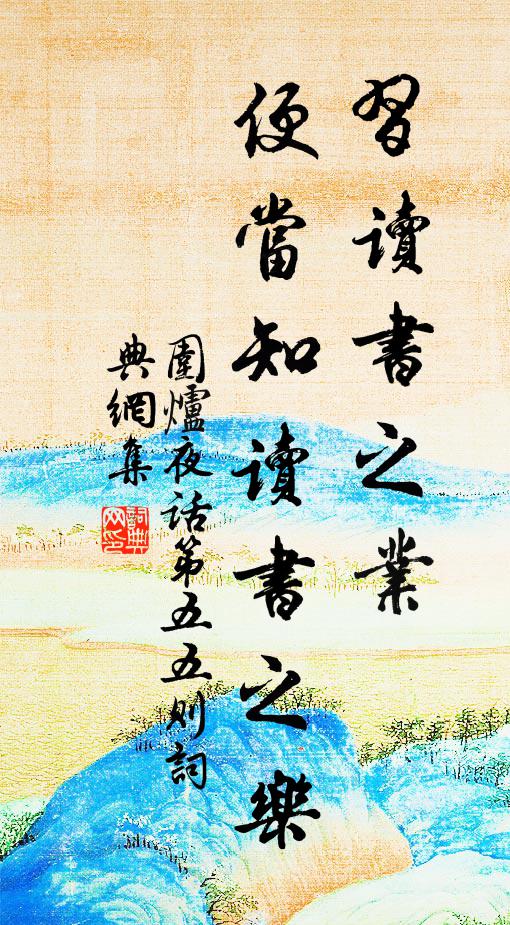 習讀書之業
便當知讀書之樂
圍爐夜话第五五则詞
典網集
詞典
网印